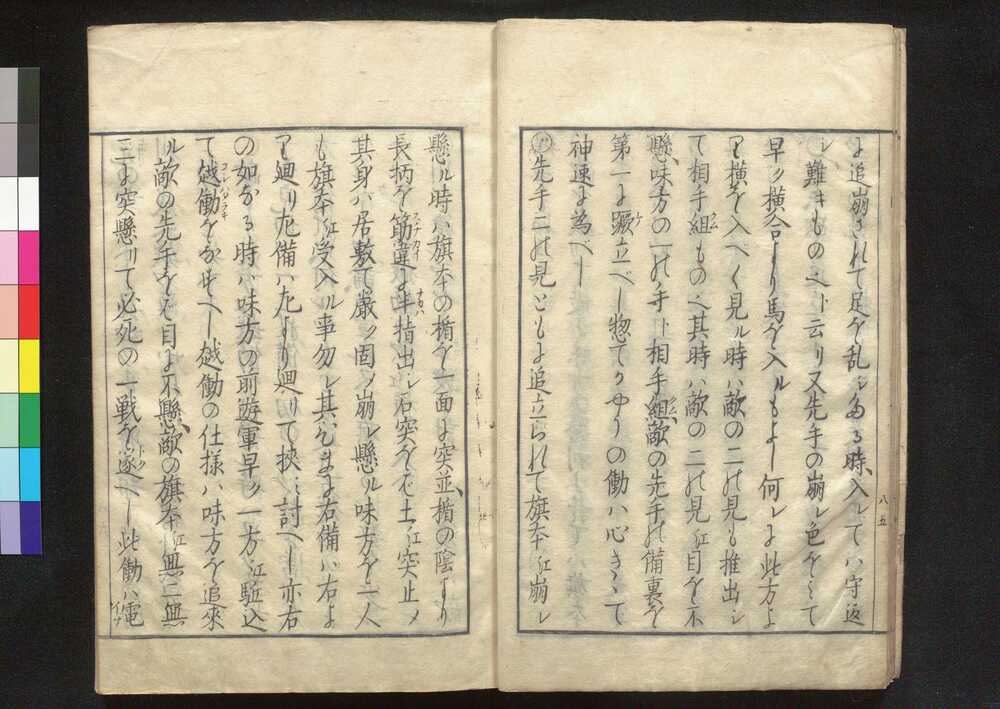 に追崩されて足を乱しる時、入レてハ守返
シ難きものへト云リ又先手の崩レ色をミて
早ク横合より馬を入ルもよし何レに此方よ
リ横を入へく見ル時ハ敵の二の見も推出シ
て相手組ものへ其時ハ敵の二の見江目を不
懸、味方の一の手ト相手組、敵の先手の備裏を
第一に蹶立べし惣てかやうの働ハ心きゝて
神速に為べし
先手二の見ともに追立られて旗本江崩レ
八五
懸ル時ハ旗本の楯を一面に突並、楯の陰より
長柄を筋違に半指出シ石突をバ土江突止メ
其身ハ居敷て厳ク固メ崩レ懸ル味方を一人
も旗本江受入ル事勿レ其まゝ右備ハ右よ
リ廻り左備ハ左より廻りて挟ミ討へし亦右
の如なる時ハ味方の前遊軍早ク一方江駈込
て働をなすべし働の仕様ハ味方を追来
ル敵の先手をバ目に不懸、敵の旗本江無二無
三に突懸りて必死の一戦を遂へし此働ハ電